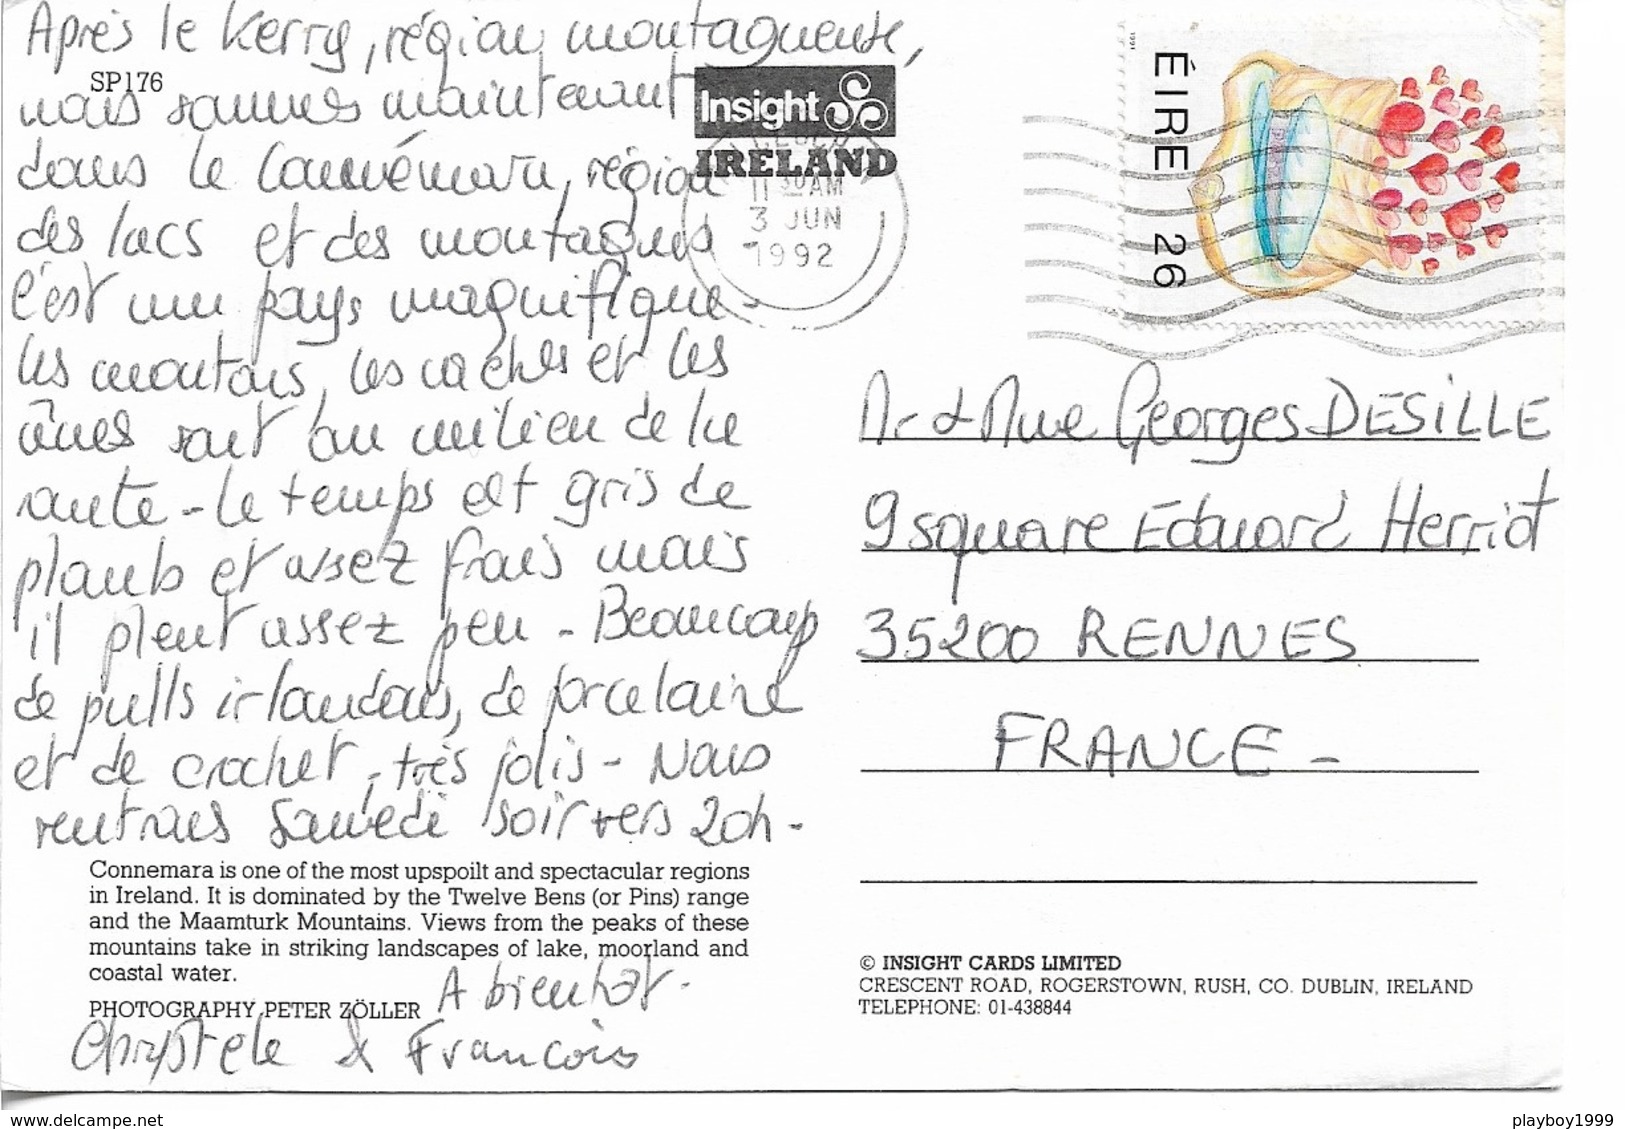 Après le Kerry, région montagneuse,
SP176
nous sommes maintenant
dans le Connémara, région
des lacs et des montagnes
C'est un pays magnifique -
les moutons, les vaches et les
ânes sont au milieu de la
route - le temps est gris de
plomb et assez frais mais
il pleut assez peu - Beaucoup
de pulls irlandais, de porcelaine
et de crochet, très jolis - Nous
rentrons Samedi soir vers 20h -
A bientôt -
Chrystele & Francois
Connemara is one of the most upspoilt and spectacular regions
in Ireland. It is dominated by the Twelve Bens (or Pins) range
and the Maamturk Mountains. Views from the peaks of these
mountains take in striking landscapes of lake, moorland and
coastal water.
PHOTOGRAPHY PETER ZÖLLER
Insight
IRELAND
11 30AM
3 JUN
1992
1991
ÉIRE 26
Mr & Mme Georges DESILLE
9 square Edouard Herriot
35200 RENNES
FRANCE -
© INSIGHT CARDS LIMITED
CRESCENT ROAD, ROGERSTOWN, RUSH, CO. DUBLIN, IRELAND
TELEPHONE: 01-438844
www.delcampe.net
playboy1999